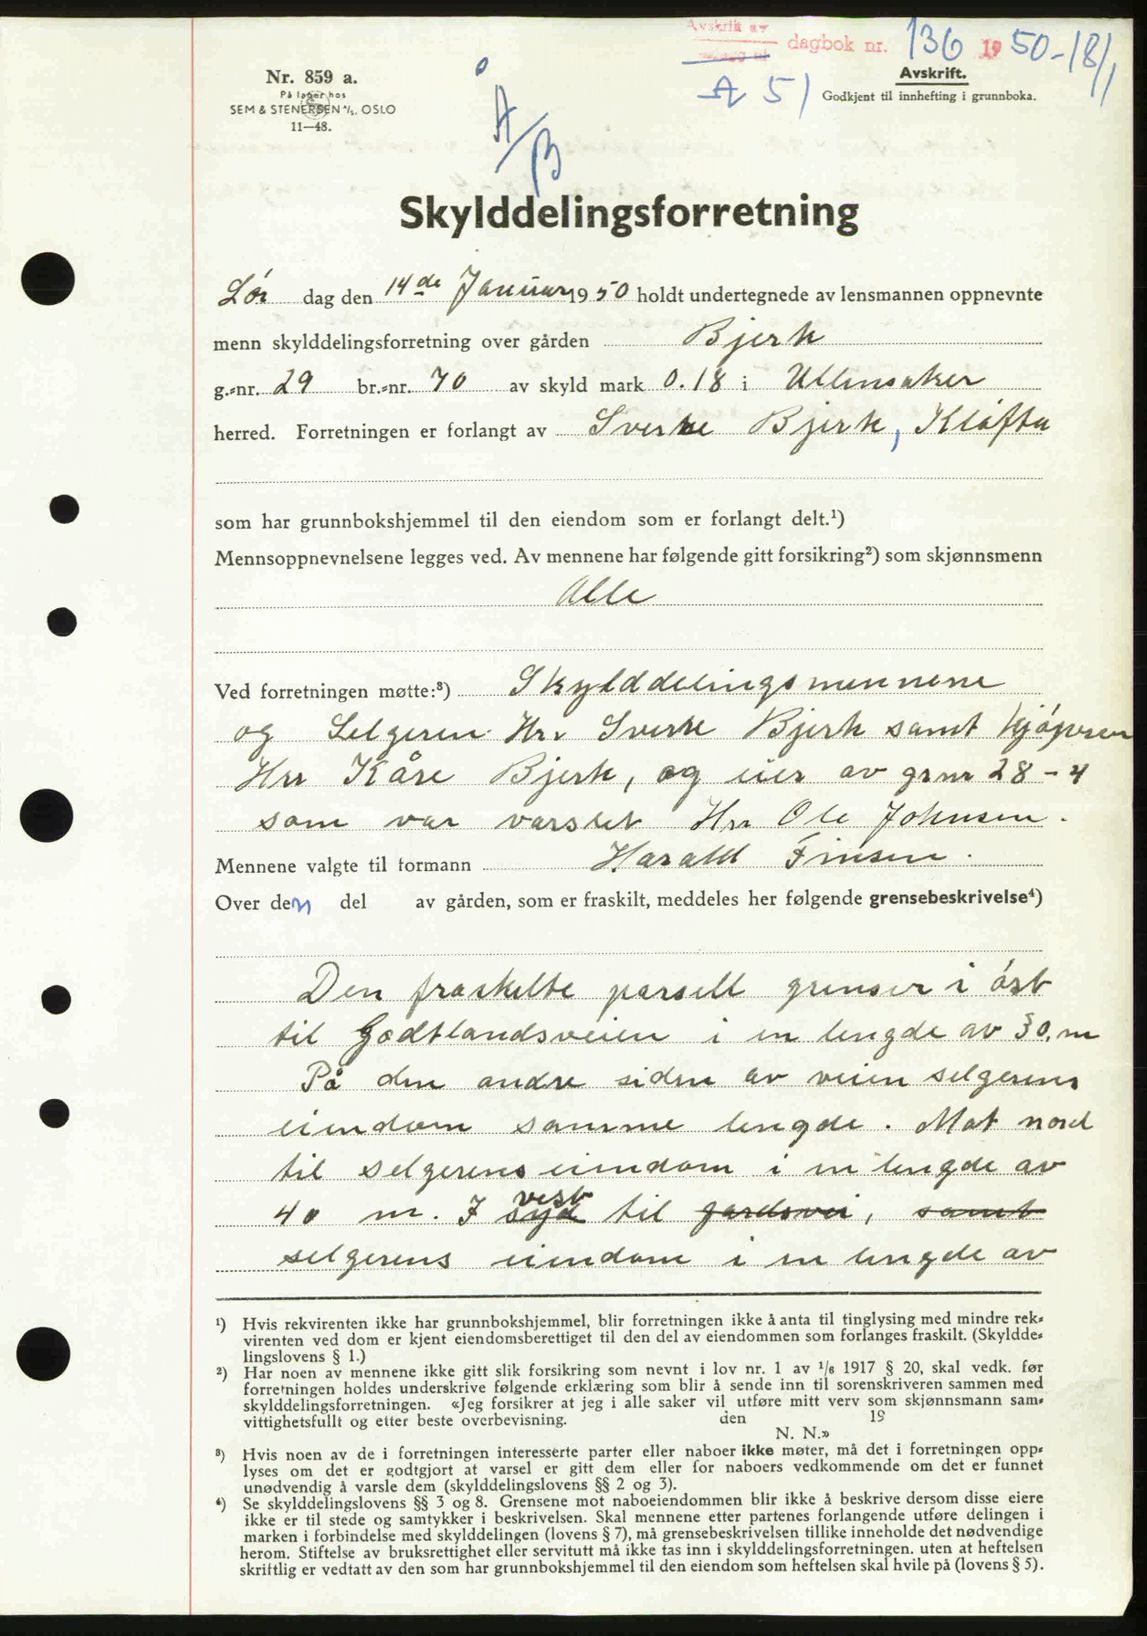 Avskrift av
dagbok nr. 136 1950-18/1
A 51
Avskrift.
Godkjent til innhefting i grunnboka.
Nr. 859 a.
På lager hos
SEM & STENERSEN A/S. OSLO
11—48.
A/B
Skylddelingsforretning
Lör dag den 14de Januar 1950 holdt undertegnede av lensmannen oppnevnte
menn skylddelingsforretning over gården Bjerk
g.-nr. 29 br.-nr. 70 av skyld mark 0.18 i Ullensaker
herred. Forretningen er forlangt av Sverre Bjerk, Klöfta
som har grunnbokshjemmel til den eiendom som er forlangt delt.¹)
Mennsoppnevnelsene legges ved. Av mennene har følgende gitt forsikring²) som skjønnsmenn
Alle
Ved forretningen møtte:³) Skylddelingsmennene
og Selgeren Hrr Sverre Bjerk samt kjöperen
Hrr Kåre Bjerk, og eier av grnr 28-4
som var varslet Hrr Ole Johnsen.
Mennene valgte til formann Harald Finsen.
Over den del av gården, som er fraskilt, meddeles her følgende grensebeskrivelse⁴)
Den fraskilte parsell grenser i öst
til Godtlandsveien i en lengde av 30. m
På den andre siden av veien selgerens
eiendom samme lengde. Mot nord
til selgerens eiendom i en lengde av
40 m. I syd vest til gardsvei, samt
selgerens eiendom i en lengde av
¹) Hvis rekvirenten ikke har grunnbokshjemmel, blir forretningen ikke å anta til tinglysing med mindre rek-
virenten ved dom er kjent eiendomsberettiget til den del av eiendommen som forlanges fraskilt. (Skyldde-
lingslovens § 1.)
²) Har noen av mennene ikke gitt slik forsikring som nevnt i lov nr. 1 av 1/6 1917 § 20, skal vedk. før
forretningen holdes underskrive følgende erklæring som blir å sende inn til sorenskriveren sammen med
skylddelingsforretningen. «Jeg forsikrer at jeg i alle saker vil utføre mitt verv som skjønnsmann sam-
vittighetsfullt og etter beste overbevisning. den 19
N. N.»
³) Hvis noen av de i forretningen interesserte parter eller naboer ikke møter, må det i forretningen opp-
lyses om det er godtgjort at varsel er gitt dem eller for naboers vedkommende om det er funnet
unødvendig å varsle dem (skylddelingslovens §§ 2 og 3).
⁴) Se skylddelingslovens §§ 3 og 8. Grensene mot naboeiendommen blir ikke å beskrive dersom disse eiere
ikke er til stede og samtykker i beskrivelsen. Skal mennene etter partenes forlangende utføre delingen i
marken i forbindelse med skylddelingen (lovens § 7), må grensebeskrivelsen tillike inneholde det nødvendige
herom. Stiftelse av bruksrettighet eller servitutt må ikke tas inn i skylddelingsforretningen. uten at heftelsen
skriftlig er vedtatt av den som har grunnbokshjemmel til den eiendom som heftelsen skal hvile på (lovens § 5).